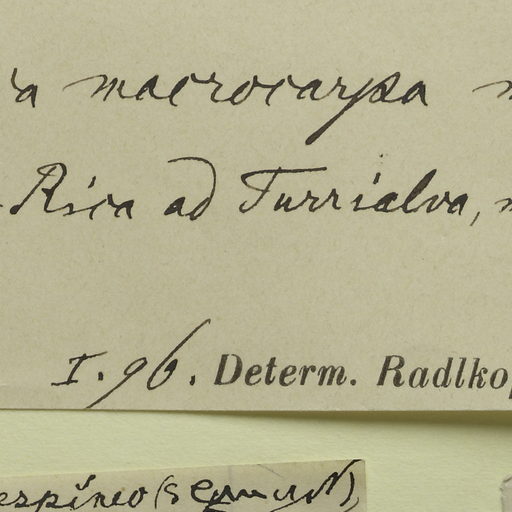 ia macrocarpa
Rica ad Turrialva,
I. 96. Determ. Radlko
espineo